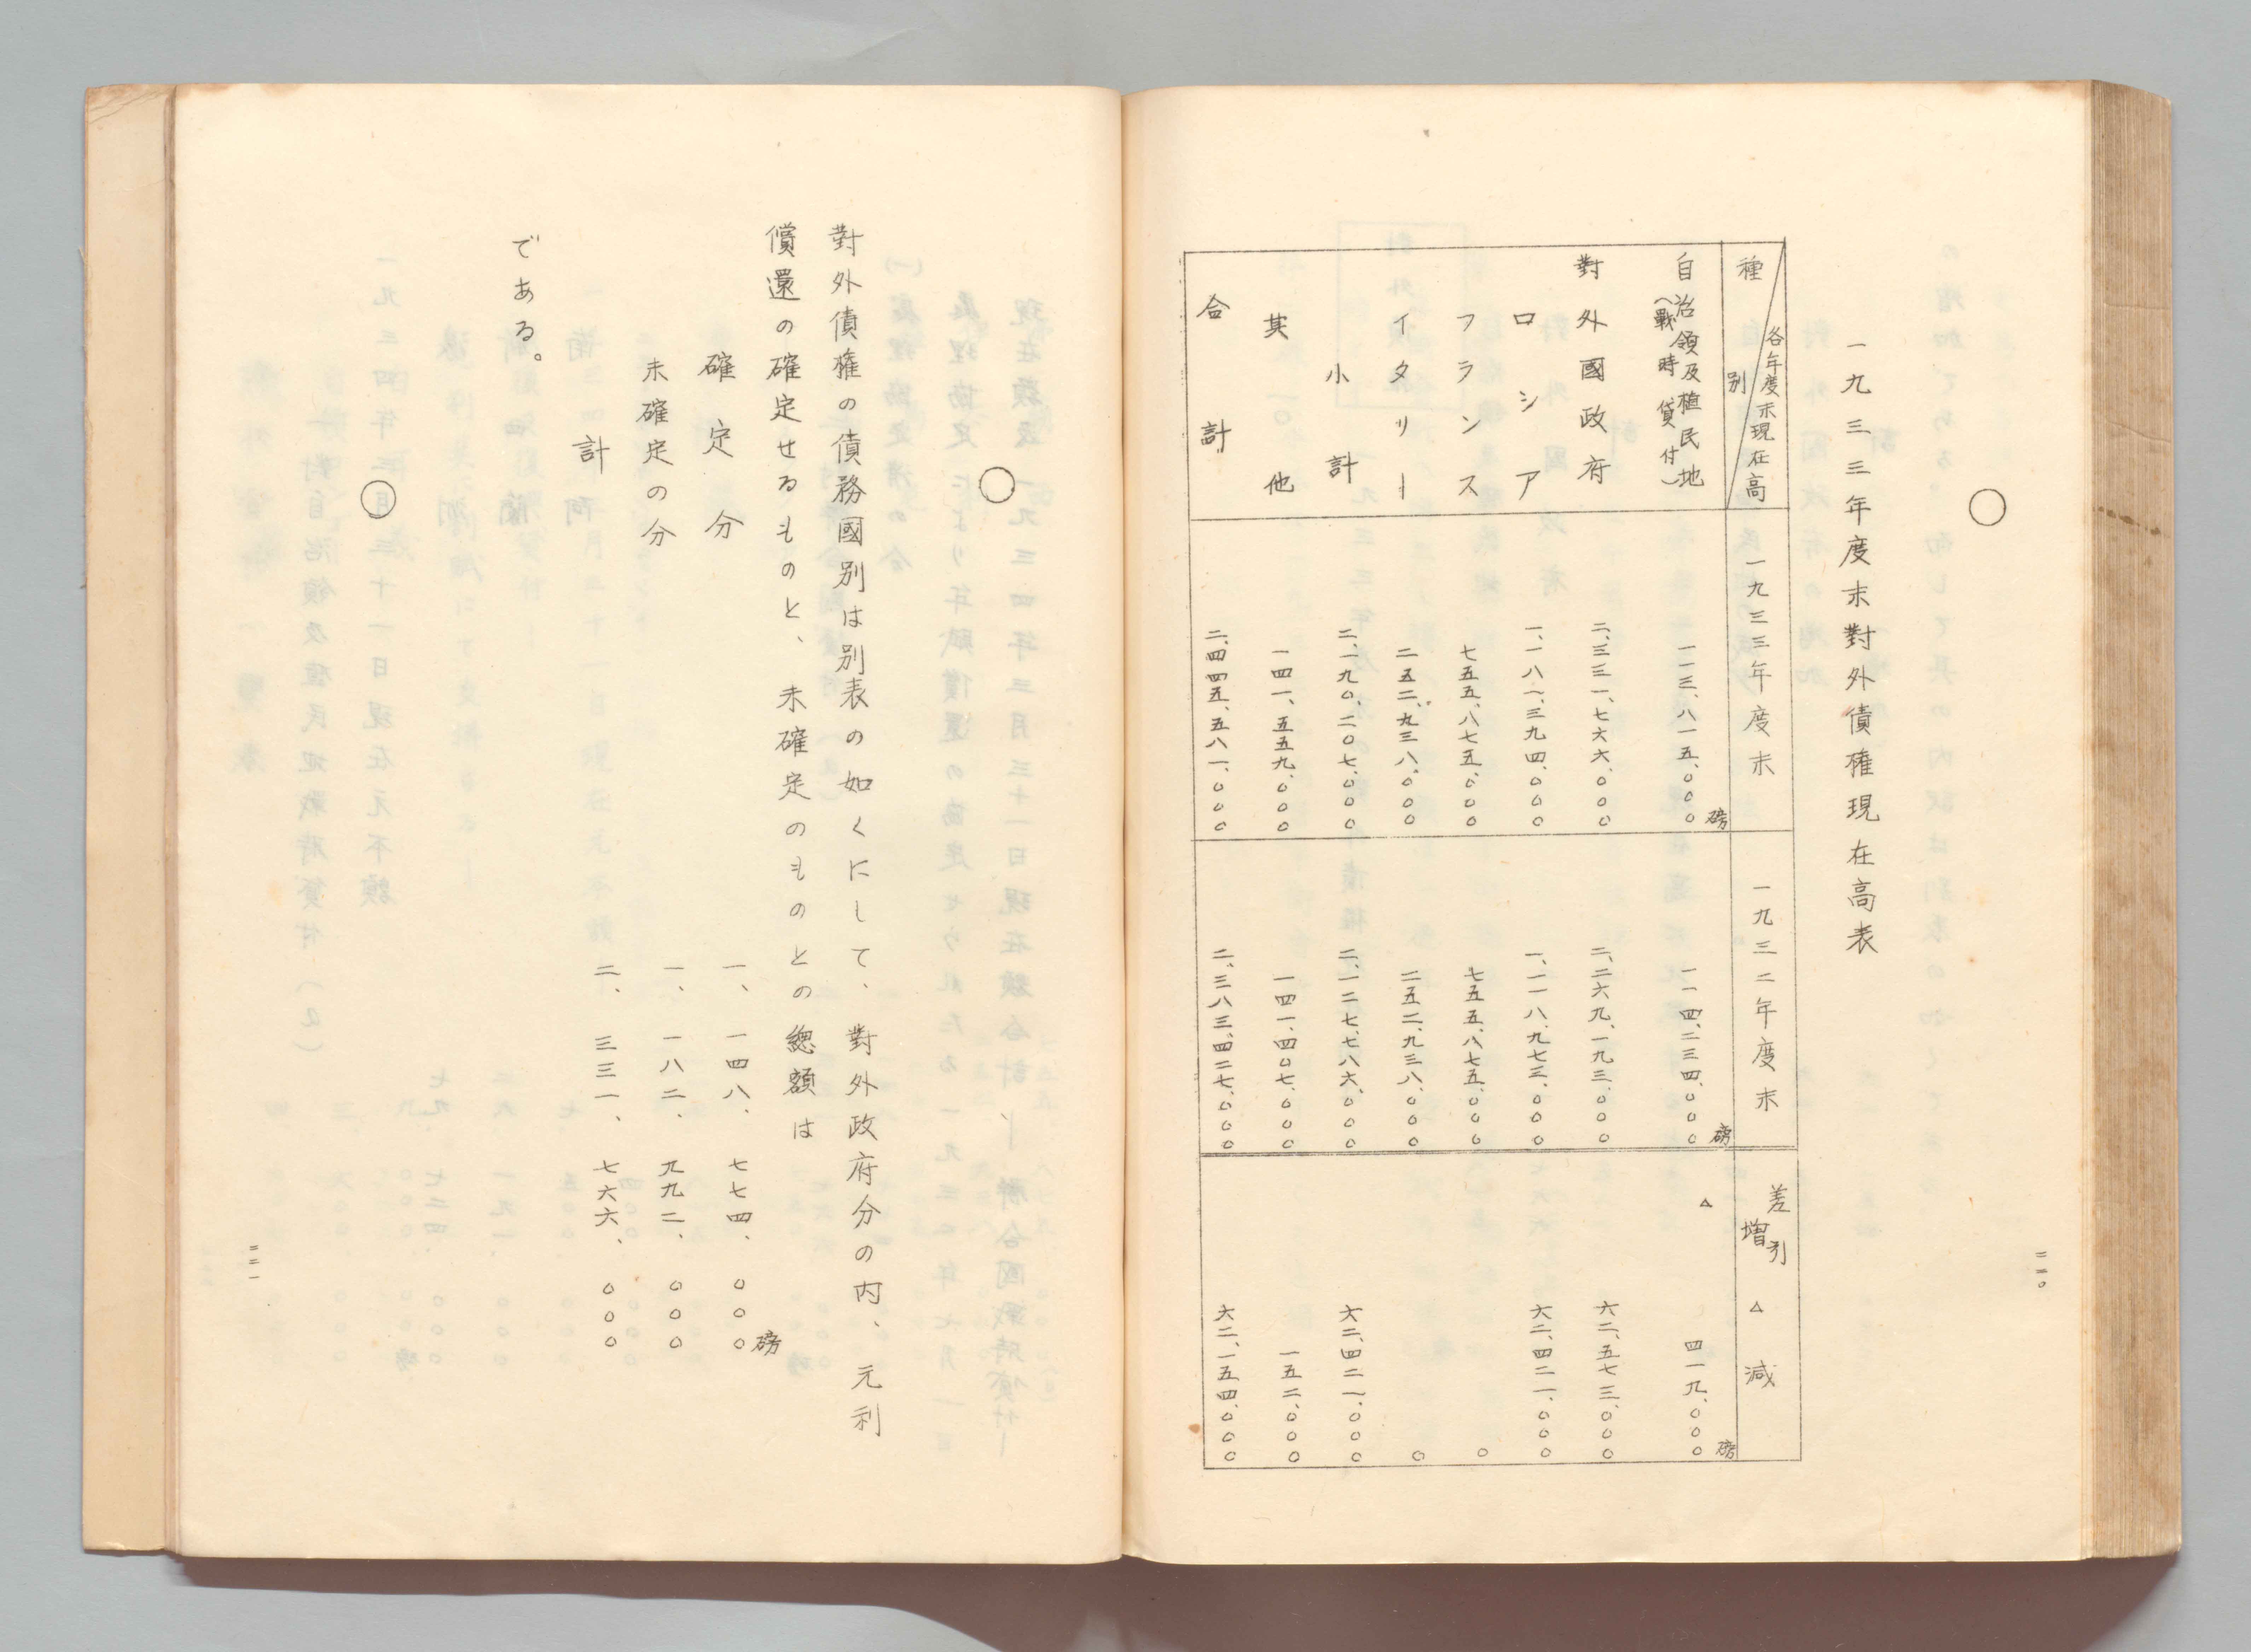 一九三三年度末對外債権現在高表
種別
各年度末現在高
一九三三年度末
一九三二年度末
差引
増 △減
自治領及植民地
(戰時貸付)
一一三、八一五、〇〇〇磅
一一四、二三四、〇〇〇磅
△ 四一九、〇〇〇磅
對外國政府
二、三三一、七六六、〇〇〇
二、二六九、一九三、〇〇〇
六二、五七三、〇〇〇
ロシア
一、一八一、三九四、〇〇〇
一、一一八、九七三、〇〇〇
六二、四二一、〇〇〇
フランス
七五五、八七五、〇〇〇
七五五、八七五、〇〇〇
〇
イタリー
二五二、九三八、〇〇〇
二五二、九三八、〇〇〇
〇
小計
二、一九〇、二〇七、〇〇〇
二、一二七、七八六、〇〇〇
六二、四二一、〇〇〇
其他
一四一、五五九、〇〇〇
一四一、四〇七、〇〇〇
一五二、〇〇〇
合計
二、四四五、五八一、〇〇〇
二、三八三、四二七、〇〇〇
六二、一五四、〇〇〇
二二〇
對外債権の債務國別は別表の如くにして、對外政府分の内、元利
償還の確定せるものと、未確定のものとの總額は
確定分 一、一四八、七七四、〇〇〇磅
未確定の分 一、一八二、九九二、〇〇〇
計 二、三三一、七六六、〇〇〇
である。
二二一